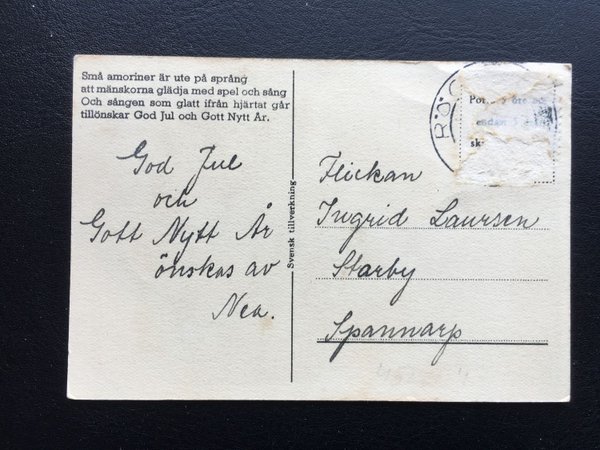 Små amoriner är ute på språng
att mänskorna glädja med spel och sång
Och sången som glatt ifrån hjärtat går
tillönskar God Jul och Gott Nytt År.
God Jul
och
Gott Nytt År
önskas av
Nea.
Svensk tillverkning
Flickan
Ingrid Laursen
Starby
Spannarp